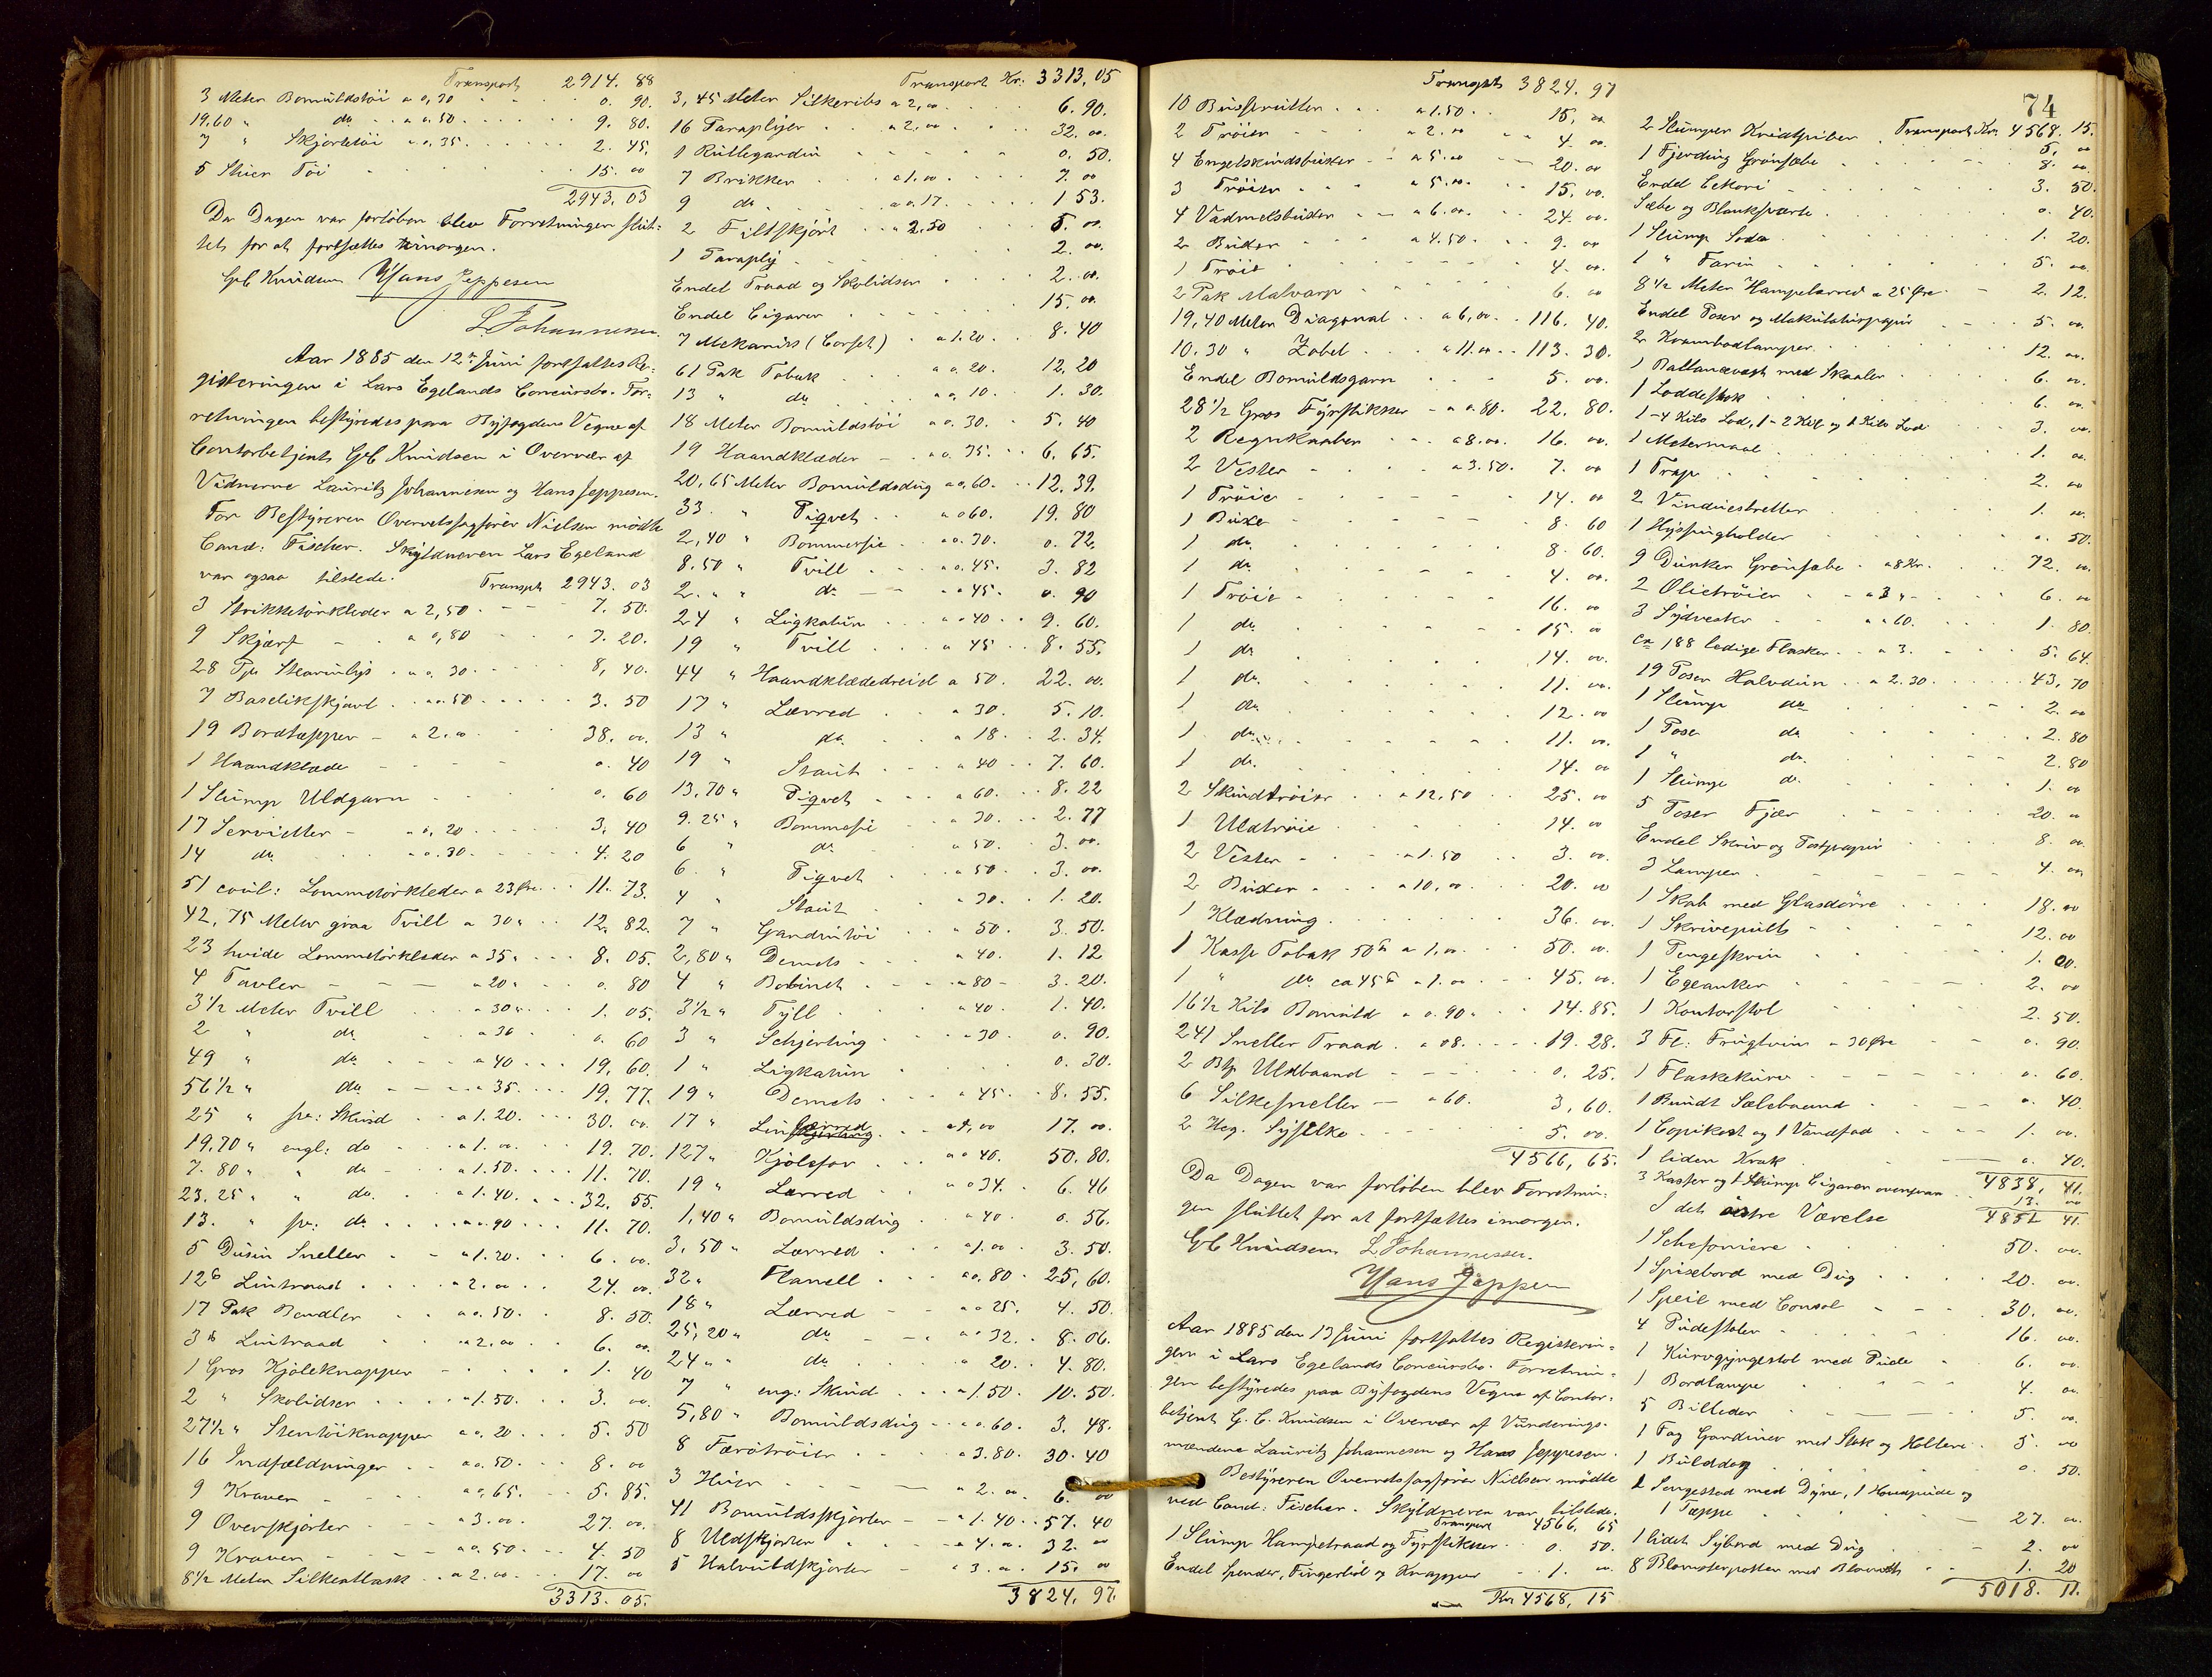 Transport 2914. 88
3 Meter Bomuldstöi a 0,30 0. 90.
19.60 " do a 0.50 9. 80.
7 " Skjortetöi a 0.35 2. 45.
5 Stuer Töi 15. 00
2943. 03
Da Dagen var forløben blev Forretningen slut-
tet for at fortsættes imorgen.
Gb Knudsen Hans Jeppesen
L Johannesen
Aar 1885 den 12te Juni fortsattes Re-
gistreringen i Lars Egelands Concursbo. For-
retningen bestyredes paa Byfogdens Vegne af
Contorbetjent Gb Knudsen i Overvær af
Vidnerne Lauritz Johannesen og Hans Jeppesen.
For Bestyreren Overretssagfører Nielsen mødte
Cand: Fischer. Skyldneren Lars Egeland
var ogsaa tilstede. Transpt 2943. 03
3 Strikketörklæder a 2,50 7. 50.
9 Skjærf a 0,80 7. 20.
28 Pk Stearinlys a 0. 30 8, 40.
7 Baselikskjört a 0.50 3. 50
19 Bordtæpper a 2.00 38. 00.
1 Haandklæde 0. 40
1 Slump Uldgarn 0. 60
17 Servietter a 0, 20 3. 40
14 do a 0.30 4. 20
51 coul: Lommetörklæder a 23 Øre 11. 73.
42,75 Meter graa Tvill a 30 " 12. 82.
23 hvide Lommetörklæder a 35 " 8. 05.
4 Tavler a 20 " 0. 80
3 1/2 Meter Tvill a 30 " 1. 05.
2 " do a 30 0. 60
49 " do a 40 19, 60.
56 1/2 " do a 35 19. 77.
25 " fr: Skind a 1.20 30. 00.
19,70 " engl: do a 1.00 19. 70.
7.80 " " do a 1.50 11. 70.
23.25 " " do a 1.40 32. 55.
13. " fr: do a 0.90 11. 70.
5 Dusin Sneller a 1.20 6. 00.
12 lb Lintraad a 2.00 24. 00.
17 Pak Bændler a 0.50. 8. 50.
3 lb Lintraad a 2.00 6. 00.
1 Gros Kjoleknapper 1. 40
2 " Skolidser a 1.50. 3. 00.
27 1/2 " Stentöiknapper a 0. 20 5. 50
16 Indfældninger a 0.50. 8. 00
9 Kraver a 0,65. 5. 85.
9 Overskjorter a 3.00. 27. 00.
9 Kraver a 0.50. 4. 50
8 1/2 Meter Silkeatlask a 2.00 17. 00
3313. 05.
Transport Kr. 3313,05
3,45 Meter Silkeribs a 2,00 6. 90.
16 Paraplyer a 2,00 32. 00.
1 Rullegardin 0. 50.
7 Brikker a 1.00 7. 00
9 do a 0.17 1 53.
2 Filtskjört a 2.50 5. 00.
1 Paraply 2. 00.
Endel Traad og Skolidser 2. 00.
Endel Cigarer 15. 00.
7 Mekanist (Corset) a 1.20 8. 40
61 Pak Tobak a 0. 20. 12. 20
13 " do a 0, 10 1. 30.
18 Meter Bomuldstöi a 0. 30. 5. 40
19 Haandklæder a 0. 35. 6. 65.
20,65 Meter Bomuldsdug a 0,60. 12. 39.
33 " Piqvet a 0 60. 19. 80
2,40 " Bommesie a 0.30. 0. 72.
8.50 " Tvill a 0.45. 3. 82
2. " " do a 45. 0. 90
24 " Ligkatun a 0 40 9. 60.
19 " Tvill a 45 8. 55.
44 " Haandklædedreiel a 50. 22. 00.
17 " Lærred a 30. 5. 10.
13 " do a 18 2. 34.
19 " Stout a 40 7. 60.
13,70 " Piqvet a 60. 8. 22
9.25 " Bommesie a 30. 2. 77
6 " do a 50. 3. 00.
6. " Piqvet a 50. 3. 00.
4 " Stout a 30. 1. 20.
7 " Gardintöi a 50. 3. 50.
2,80 " Demets a 40. 1. 12
4 " Bobinet a 80 3. 20.
3 1/2 " Tyll a 40 1. 40.
3 " Schjerting a 30 0. 90.
1 " Ligkatun 0. 30.
19 " Demets a 45. 8. 55.
17 " Linlærred a 1,00 17. 00.
127 " Kjolefor a 0 40. 50. 80.
19 " Lærred a 0 34. 6. 46
1,40 " Bomuldsdug a 40 0. 56.
3,50 " Lærred a 1.00 3. 50.
32 " Flanell a 0.80 25, 60.
18 " Lærred a 0 25. 4. 50.
25,20 " do a 0 32. 8. 06.
24 " " do a 20. 4. 80.
7 " eng: Skind a 1.50. 10. 50.
5,80 " Bomuldsdug a 0.60. 3. 48.
8 Færötröier a 3.80. 30. 40
3 Huer a 2. 00 6. 00
41 Bomuldsskjorter a 1.40 57. 40
8 Uldskjorter a 4.00 32. 00
5 Halvuldskjorter a 3.00 15. 00
3824. 97.
Transpt 3824. 97
10 Busseruller a 1.50. 15, 00.
2 Tröier a 2.00 4. 00.
4 Engelskindsbuxer a 5.00 20. 00
3 Tröier a 5.00. 15, 00.
4 Vadmelsbuxer a 6.00. 24. 00.
2 Buxer a 4.50. 9. 00
1 Tröie 4. 00.
2 Pak Malvarp 6. 00
19,40 Meter Diagonal a 6,00. 116. 40.
10.30 " Zobel a 11.00 113. 30.
Endel Bomuldsgarn 5. 00.
28 1/2 Gros Fyrstikker a 0.80. 22. 80.
2 Regnkaaber a 8.00. 16. 00.
2 Vester a 3.50. 7. 00
1 Tröie 14. 00
1 Buxe 8. 60
1 do. 8. 60.
1 do. 4. 00.
1 Tröie 16. 00
1 do. 15. 00
1 do 14. 00.
1 do. 11. 00.
1 do. 12. 00
1 do. 11. 00.
1 do. 14. 00
2 Skindtröier a 12.50 25. 00
1 Uldtröie 14. 00
2 Vester a 1.50 3. 00.
2 Buxer a 10,00 20. 00
1 Klædning 36. 00.
1 Kasse Tobak 50 lb a 1,00 50. 00.
1 " do. ca 45 lb a 1.00 45. 00.
16 1/2 Kilo Bomuld a 0.90 " 14. 85.
241 Sneller Traad a 08. 19. 28.
2 Bt Uldbaand 0. 25.
6 Silkesneller a 60. 3, 60.
2 Heg. Sysilke 5. 00.
4566, 65.
Da Dagen var forløben blev Forretnin-
gen sluttet for at fortsættes imorgen.
Gb Knudsen L Johannesen.
Hans Jeppsen
Aar 1885 den 13 Juni fortsattes Registrerin-
gen i Lars Egelands Concursbo. Forretnin-
gen bestyredes paa Byfogdens Vegne af Contor-
betjent G. C. Knudsen i Overvær af Vurderings-
mændene Lauritz Johannesen og Hans Jeppesen.
Bestyreren Overretssagfører Nielsen mødte
ved Cand: Fischer. Skyldneren var tilstede.
Transport 4566, 65
1 Slump Hampetraad og Fyrstikker 0. 50.
Endel Spender, Fingerböl og Knapper 1. 00.
Kr 4568, 15
74
Transport Kr. 4568. 15.
2 Slumper Kridtpiber 5. 00
1 Fjerding Grönsæbe 8. 00.
Endel Cekori 3. 50.
Sæbe og Blanksværte 0. 40.
1 Slump Soda 1. 20.
1 " Farin 5. 00.
8 1/2 Meter Hampelærred a 25 Øre 2. 12.
Endel Poser og Makulaturpapir 5. 00.
2 Krambodlamper 12. 00.
1 Ballancevegt med Skaaler 6. 00.
1 Loddestok 6. 00
1-4 Kilo Lod, 1-2 Kilo og 1 Kilo Lod 3. 00.
1 Metermaal 1. 00.
1 Trap 2. 00
2 Vinduestreller 1. 00.
1 Hyssingholder 0. 50.
9 Dunker Grönsæbe a 8 Kr. 72. 00.
2 Olietröier a 3 " 6. 00
3 Sydvester a 0 60. 1. 80.
ca 188 ledige Flasker a 3. 5. 64.
19 Poser Halvdun a 2.30 43, 70
1 Slump do 2. 00
1 Pose do 2. 80
1 " do. 2. 80
1 Slump do. 1. 00
5 Poser Fjær 20. 00
Endel Skriv og Postpapir 8. 00.
3 Lamper 4. 00
1 Skab med Glasdörre 18. 00
1 Skrivepult 12. 00
1 Pengeskrin 1. 00.
1 Egeanker 2. 00
1 Kontorstol 2. 50.
3 Fl: Frugtvin a 30 Øre 0. 90.
1 Flaskekurv 0. 60.
1 Bundt Sælebaand 0. 40.
1 Copikost og 1 Vandfad 1. 00.
1 liden Krak 0. 40.
4838, 41.
3 Kasser og 1 Slump Cigarer ovenpaa 13. 00
I det østre Værelse 4851 41.
1 Schefoniere 50. 00.
1 Spisebord med Dug 20. 00.
1 Speil med Consol 30. 00.
4 Pudestoler 16. 00.
1 Kurvgyngestol med Pude 6. 00.
1 Bordlampe 4. 00.
5 Billeder 5. 00.
1 Fag Gardiner med Stok og Holdere 5. 00
1 Bulddog 0. 50.
1 Sengestad med Dyne, 1 Hovedpude og
1 Tæppe 27. 00.
1 lidet Sybord med Dug 2. 00
8 Blomsterpotter med Blomst 1. 20
5018. 11.